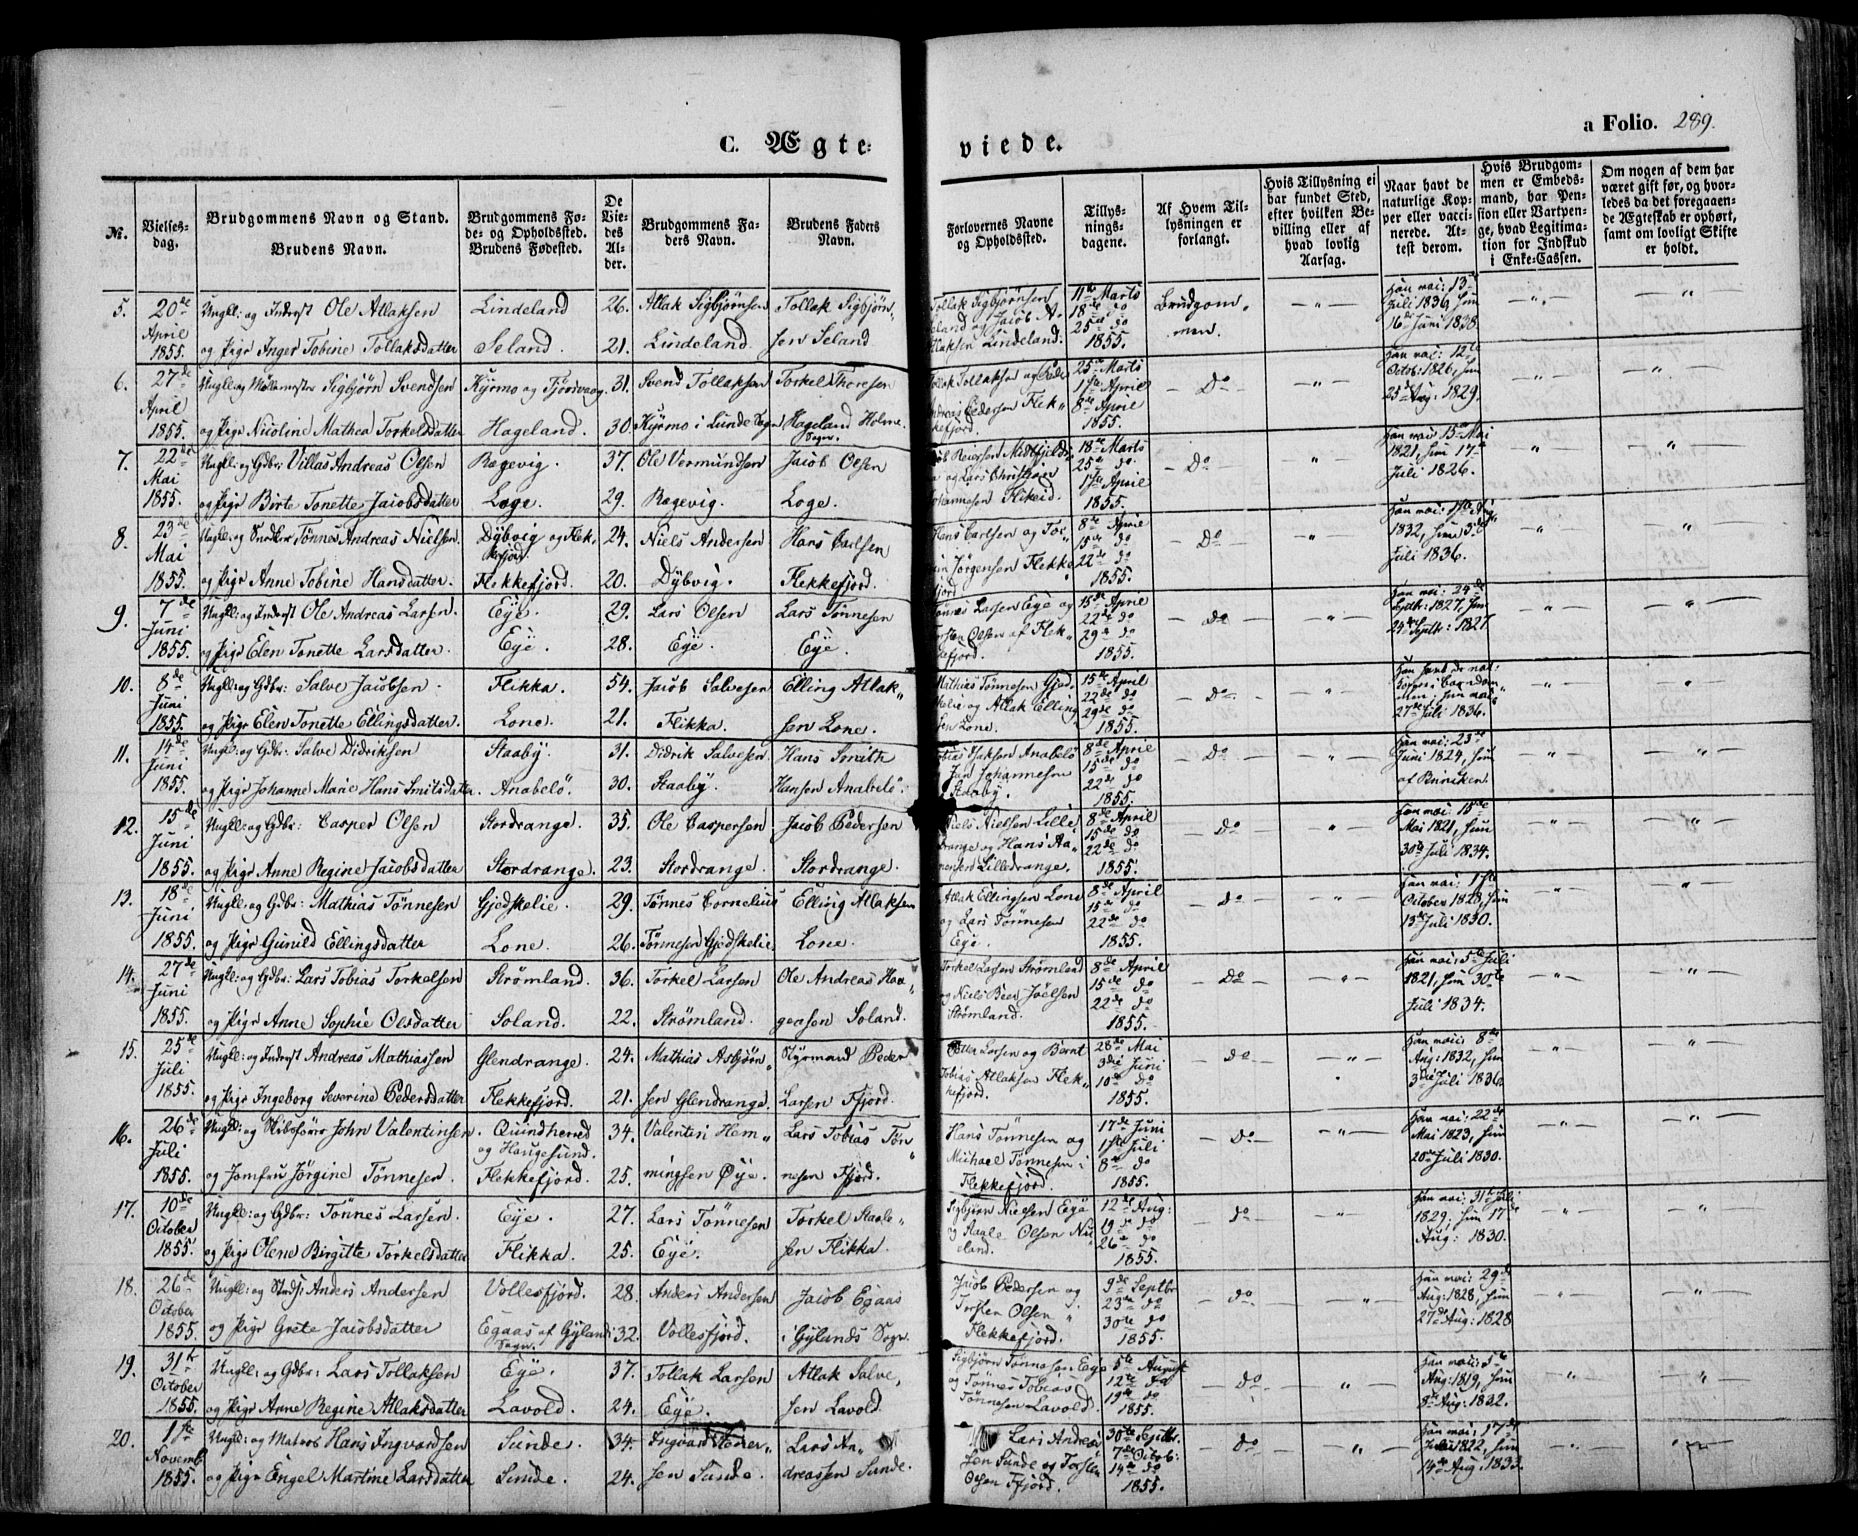 C. Ægte-
viede.
a Folio. 289.
№.
Vielses-
dag.
Brudgommens Navn og Stand.
Brudens Navn.
Brudgommens Fø-
de- og Opholdssted.
Brudens Fødested.
De
Vie-
des
Al-
der.
Brudgommens Fa-
ders Navn.
Brudens Faders
Navn.
Forlovernes Navne
og Opholdssted.
Tillys-
nings-
dagene.
Af Hvem Til-
lysningen er
forlangt.
Hvis Tillysning ei
har fundet Sted,
efter hvilken Be-
villing eller af
hvad lovlig
Aarsag.
Naar havt de
naturlige Kop-
per eller vacci-
nerede. At-
test derom.
Hvis Brudgom-
men er Embeds-
mand, har Pen-
sion eller Vartpen-
ge, hvad Legitima-
tion for Indskud
i Enke-Cassen.
Om nogen af dem har
været gift før, og hvor-
ledes da det foregaaen-
de Ægteskab er ophørt,
samt om lovligt Skifte
er holdt.
5. 20de Ungkl: og Inderst Ole Atlaksen Lindeland 26. Atlak Sigbjørnsen Tollak Sigbjørn- Tollak Sigbjørnsen 11te Marts Brudgom- Han vai: 13de
April 18de do men. Juli 1830, hun
1855. og Pige Inger Tobine Tollaksdatter Seland. 21. Lindeland. sen Seland. Atlaksen Lindeland. 25de do 1855. 16de Juni 1838.
6. 27de Sigbjørn Svendsen Kyrmo og Fjørsvaag 31. Svend Tollaksen Torkel Thoresen Tollak Tollaksen og Peder 25de Marts Do Han vai: 12te
April 1ste April Octob: 1826, hun
1855. og Pige Nicoline Mathea Torkelsdatter Hageland. 30. Kyrmo i Lunde Sogn Hageland Holme Sogn. Andreas Pedersen Flekkefjord. 8de April 1855. 25de Aug: 1829.
7. 22de Ungkl: og Gdbr: Villas Andreas Olsen Ragevig. 37. Ole Vermundsen Jacob Olsen 18de Marts Do Han vai: 15de Mai
Mai og Lars Christian 25de do 1821, hun 17de
1855. og Pige Birte Tonette Jacobsdatter Loge. 29. Ragevig. Loge. Johannesen Flikeid. 1ste April 1855. Juli 1826.
8. 23de Ungkl: og Snedker Tønnes Andreas Nielsen. Dybvig og Flekkefjord. 24. Niels Andersen Hans Carlsen Hans Carlsen 8de April Do Han vai: 1ste Aug:
Mai 15de do 1832, hun 3de
1855. og Pige Anne Tobine Hansdatter. Flekkefjord. 20. Dybvig. Flekkefjord. Jørgensen Flekkefjord 22de do 1855. Juli 1836.
9. 7de Ungkl: og Inderst Ole Andreas Larsen. Eye. 29. Lars Olsen Lars Tønnesen Tønnes Larsen Eye og 15de April Do Han vai: 24de
Juni Torsten Olsen af Flek- 22de do Septbr: 1827, hun
1855. og Pige Elen Tonette Larsdatter. Eye. 28. Eye. Eye. kefjord. 29de do 1855. 24de Septbr: 1827
10. 8de Ungkl: og Gdbr: Salve Jacobsen. Flikka. 54. Jacob Salvesen Elling Atlak- Mathias Tønnesen Gjed- 15de April Do Han havt de nat:
Juni skelie og Atlak Elling- 22de do Kopper i Barndom-
1855. og Pige Elen Tonette Ellingsdatter. Lone. 21. Flikka. sen Lone. sen Lone. 29de do 1855. men. hun vai: 27de Juli 1836.
11. 14de Ungkl: og Gdbr: Salve Didriksen Staaby. 31. Didrik Salvesen. Hans Smith Tobias Isaksen Anabelø 8de April Do Han vai: 23de
Juni Jan Johannesen 15de do Juni 1824, hun
1855. og Pige Johanne Marie Hans Smitsdatter. Anabelø. 30. Staaby. Hansen Anabelø. Staaby. 22de do 1855. af Binniken.
12. 15de Ungkl: og Gdbr: Casper Olsen Stordrange. 35. Ole Caspersen Jacob Pedersen Niels Nielsen Lille- 8de April Do Han vai: 15de
Juni drange og Hans Aa- 15de do Mai 1821, hun
1855. og Pige Anne Regine Jacobsdatter Stordrange. 23. Stordrange. Stordrange. mensen Lilledrange. 22de do 1855. 30te Juli 1834.
13. 18de Ungkl: og Gdbr: Mathias Tønnesen Gjedskelie. 29. Tønnes Cornelius Elling Atlaksen Atlak Ellingsen Lone 8de April Do Han vai: 1ste
Juni og Lars Tønnesen 15de do October 1828, hun
1855. og Pige Gunild Ellingsdatter Lone. 26. Tønnesen Gjedskelie. Lone. Eye. 22de do 1855. 13de Juli 1830.
14. 27de Ungkl: og Gdbr: Lars Tobias Torkelsen Strømland. 36. Torkel Larsen Ole Andreas Haa- Torkel Larsen Strømland 8de April Do Han vai: 5te Juli
Juni og Niels Beer Joelsen 15de do 1821, hun 30te
1855. og Pige Anne Sophie Olsdatter Soland. 22. Strømland. gensen Soland. Strømland. 22de do 1855. Juli 1834.
15. 25de Ungkl: og Inderst Andreas Mathiassen Glendrange. 24. Mathias Asbjørn- Styrmand Peder Petter Larsen og Bernt 28de Mai Do Han vai: 8de
Juli Tobias Atlaksen Flek- 3die Juni Aug: 1832, hun
1855. og Pige Ingeborg Severine Pedersdatter Flekkefjord. 21. sen Glendrange. Larsen Fjord. kefjord. 10de do 1855. 3die Juli 1836.
16. 26de Ungkl: og Skibsfører John Valentinsen. Quindherred og Haugesund. 34. Valentin Hem- Lars Tobias Tøn- Hans Tønnesen og 17de Juni Do Han vai: 22de
Juli Michael Tønnesen i 1ste Juli Mai 1823, hun
1855. og Jomfru Jørgine Tønnesen. Flekkefjord. 25. mingsen Øye. nesen Fjord. Flekkefjord. 8de do 1855. 20de Juli 1830.
17. 10de Ungkl: og Gdbr: Tønnes Larsen. Eye. 27. Lars Tønnesen Torkel Staale- Sigbjørn Nielsen Egø 12te Aug: Do Han vai: 31te Juli
October og Aaale Olsen Nu- 19de do 1829, hun 17de
1855. og Pige Olene Birgitte Torkelsdatter Flikka. 25. Eye. sen Flikka. eland. 26de do 1855. Aug: 1830.
18. 26de Ungkl: og Anders Andersen Vollesfjord. 28. Anders Andersen Jacob Egaas Jacob Pedersen og 9de Septbr Do Han vai: 29de
October Torsten Olsen 23de do Aug: 1828, hun
1855. og Pige Grete Jacobsdatter Egaas af Gylands Sogn. 32. Vollesfjord. i Gylands Sogn. Flekkefjord. 30te do 1855. 27de Aug: 1828
19. 31te Ungkl: og Gdbr: Lars Tollaksen Eye. 37. Tollak Larsen Atlak Salve- Sigbjørn Tønnesen Eye 5te August Do Han vai: 5te
October og Tønnes Tobias 12te do Aug: 1819, hun
1855. og Pige Anne Regine Atlaksdatter Lavold. 24. Eye. sen Lavold. Tønnesen Lavold. 19de do 1855. 8de Aug: 1832.
20. 1ste Ungkl: og Matros Hans Ingvardsen Sunde. 34. Ingvard Lars An- Lars Andrea- 30te Septbr. Do Han vai: 17de
Novemb sen Sunde og Torsten 7de Octob: Juli 1822, hun
1855. og Pige Engel Martine Larsdatter Sunde. 24. sen Sunde. dreassen Sunde. Olsen Fjord. 14de do 1855. 14de Aug: 1833.